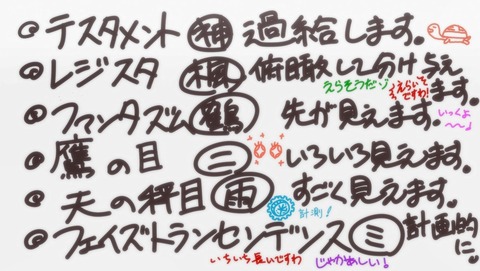 テスタメント 神 過給します。
レジスタ 楓 俯瞰して分け与えます。
えらそうだゾ
えらいんですわ!
ファンタズム 鶴 先が見えます。
いっくよ〜〜♪
鷹の目 二 いろいろ見えます。
天の秤目 雨 すごく見えます。
計測!
フェイズトランセンデンス 三 計画的に。
いちいち長いですわ
じゃかあしい!